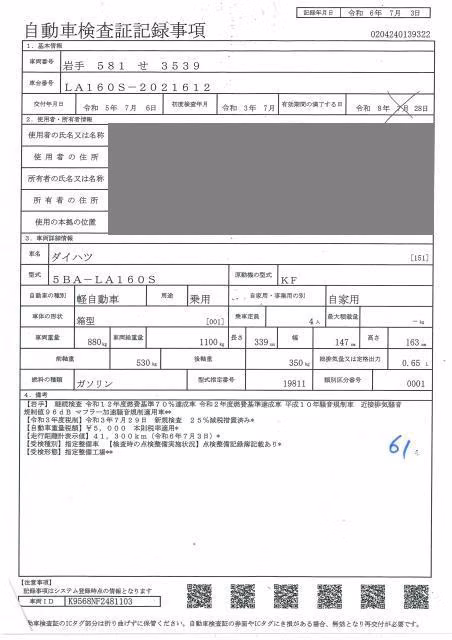 記録年月日 令和 6年 7月 3日
自動車検査証記録事項 0204240139322
1．基本情報
車両番号 岩手 581 せ 3539
車台番号 LA160S-2021612
交付年月日 令和 5年 7月 6日 初度検査年月 令和 3年 7月 有効期間の満了する日 令和 8年 7月 28日
2．使用者・所有者情報
使用者の氏名又は名称
使用者の住所
所有者の氏名又は名称
所有者の住所
使用の本拠の位置
3．車両詳細情報
車名 ダイハツ [151]
型式 5BA-LA160S 原動機の型式 KF
自動車の種別 軽自動車 用途 乗用 自家用・事業用の別 自家用
車体の形状 箱型 [001] 乗車定員 4人 最大積載量 -kg
車両重量 880kg 車両総重量 1100kg 長さ 339cm 幅 147cm 高さ 163cm
前軸重 530kg 後軸重 350kg 総排気量又は定格出力 0.65 L
燃料の種類 ガソリン 型式指定番号 19811 類別区分番号 0001
4．備考
【岩手】 継続検査 令和12年度燃費基準70％達成車 令和2年度燃費基準達成車 平成10年騒音規制車 近接排気騒音
規制値96dB マフラー加速騒音規制適用車**
【令和3年度税制】令和3年7月29日 新規検査 25％減税措置済み*
【自動車重量税額】￥5，000 本則税率適用*
【走行距離計表示値】41，300km（令和6年7月3日）*
【受検種別】指定整備車 【検査時の点検整備実施状況】点検整備記録簿記載あり*
【受検形態】指定整備工場**
61
【注意事項】
記録事項はシステム登録時点の情報となります
車両ID K9568NF2481103
動車検査証のICタグ部分は折り曲げずに保管ください。自動車検査証の券面やICタグにき損がある場合、無効となり再交付が必要です。